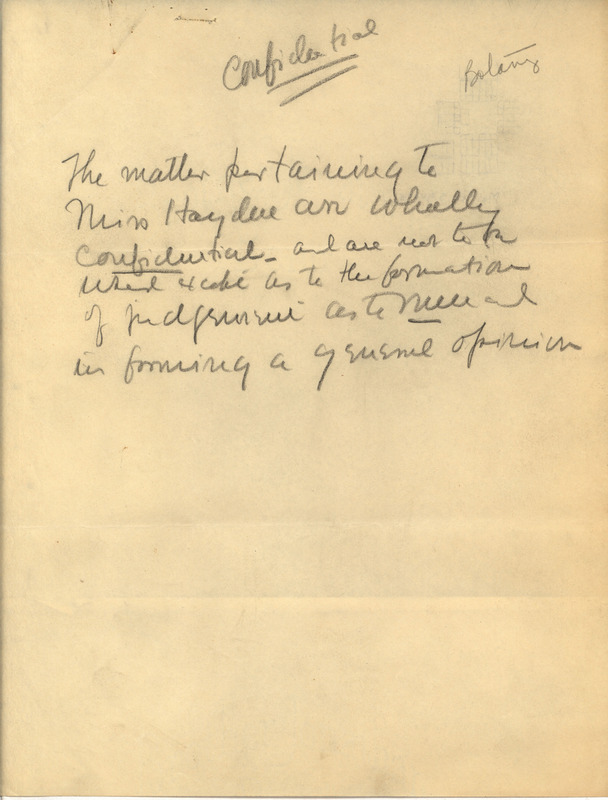 Confidential
Botany
The matter pertaining to
Miss Hayden are wholly
confidential - and are not to be
used except as to the formation
of judgement as to and
in forming a general opinion